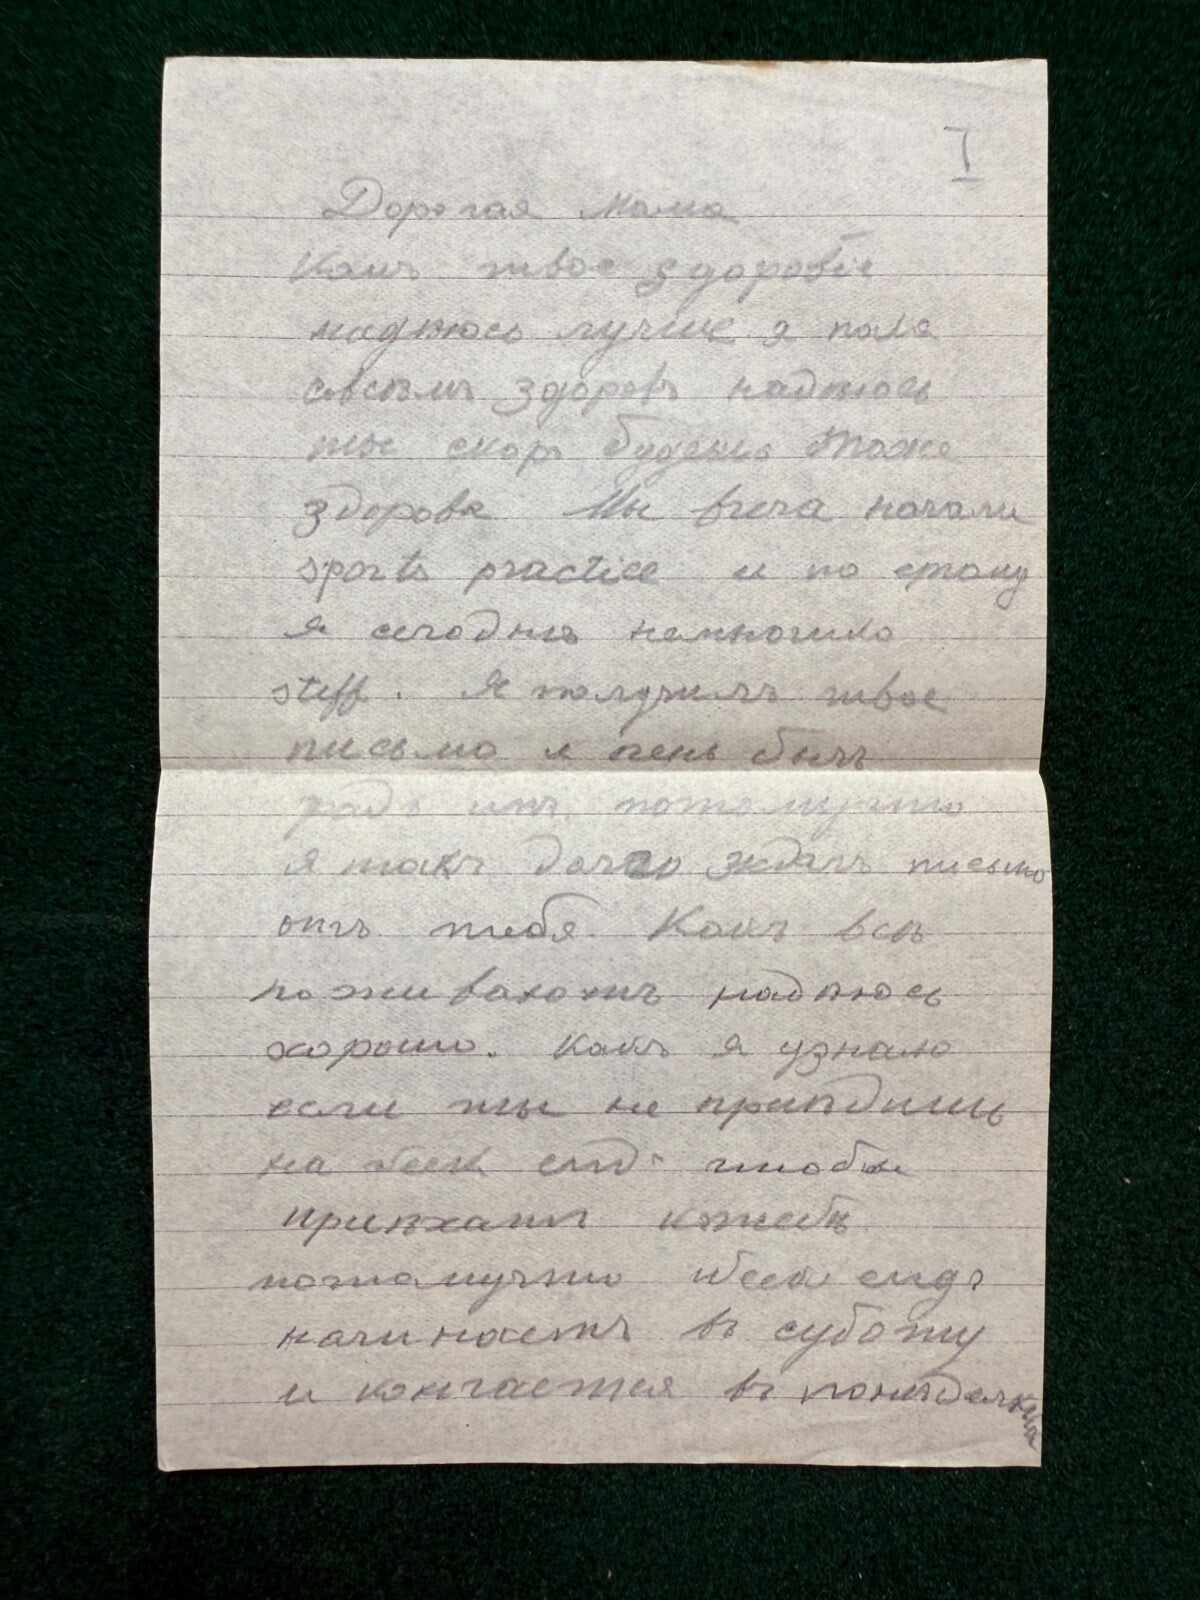 I
Дорогая Мама
Какъ твое здоровіе
надѣюсь лучше я
совсѣмъ здоровъ надѣюсь
ты скоро будешь тоже
здорова Мы вчера начали
sports practice и по етому
я сегодня немножко
stiff. Я получилъ твое
письмо и очень былъ
радъ имъ потомучто
я такъ долго ждалъ письмо
отъ тебя. Какъ всѣ
поживаютъ надѣюсь
хорошо. Какъ я узнаю
если ты не пріѣдишь
на week end чтобы
приѣхать ктебѣ
потомучто week ендъ
начинаетъ въ суботу
и кончается въ